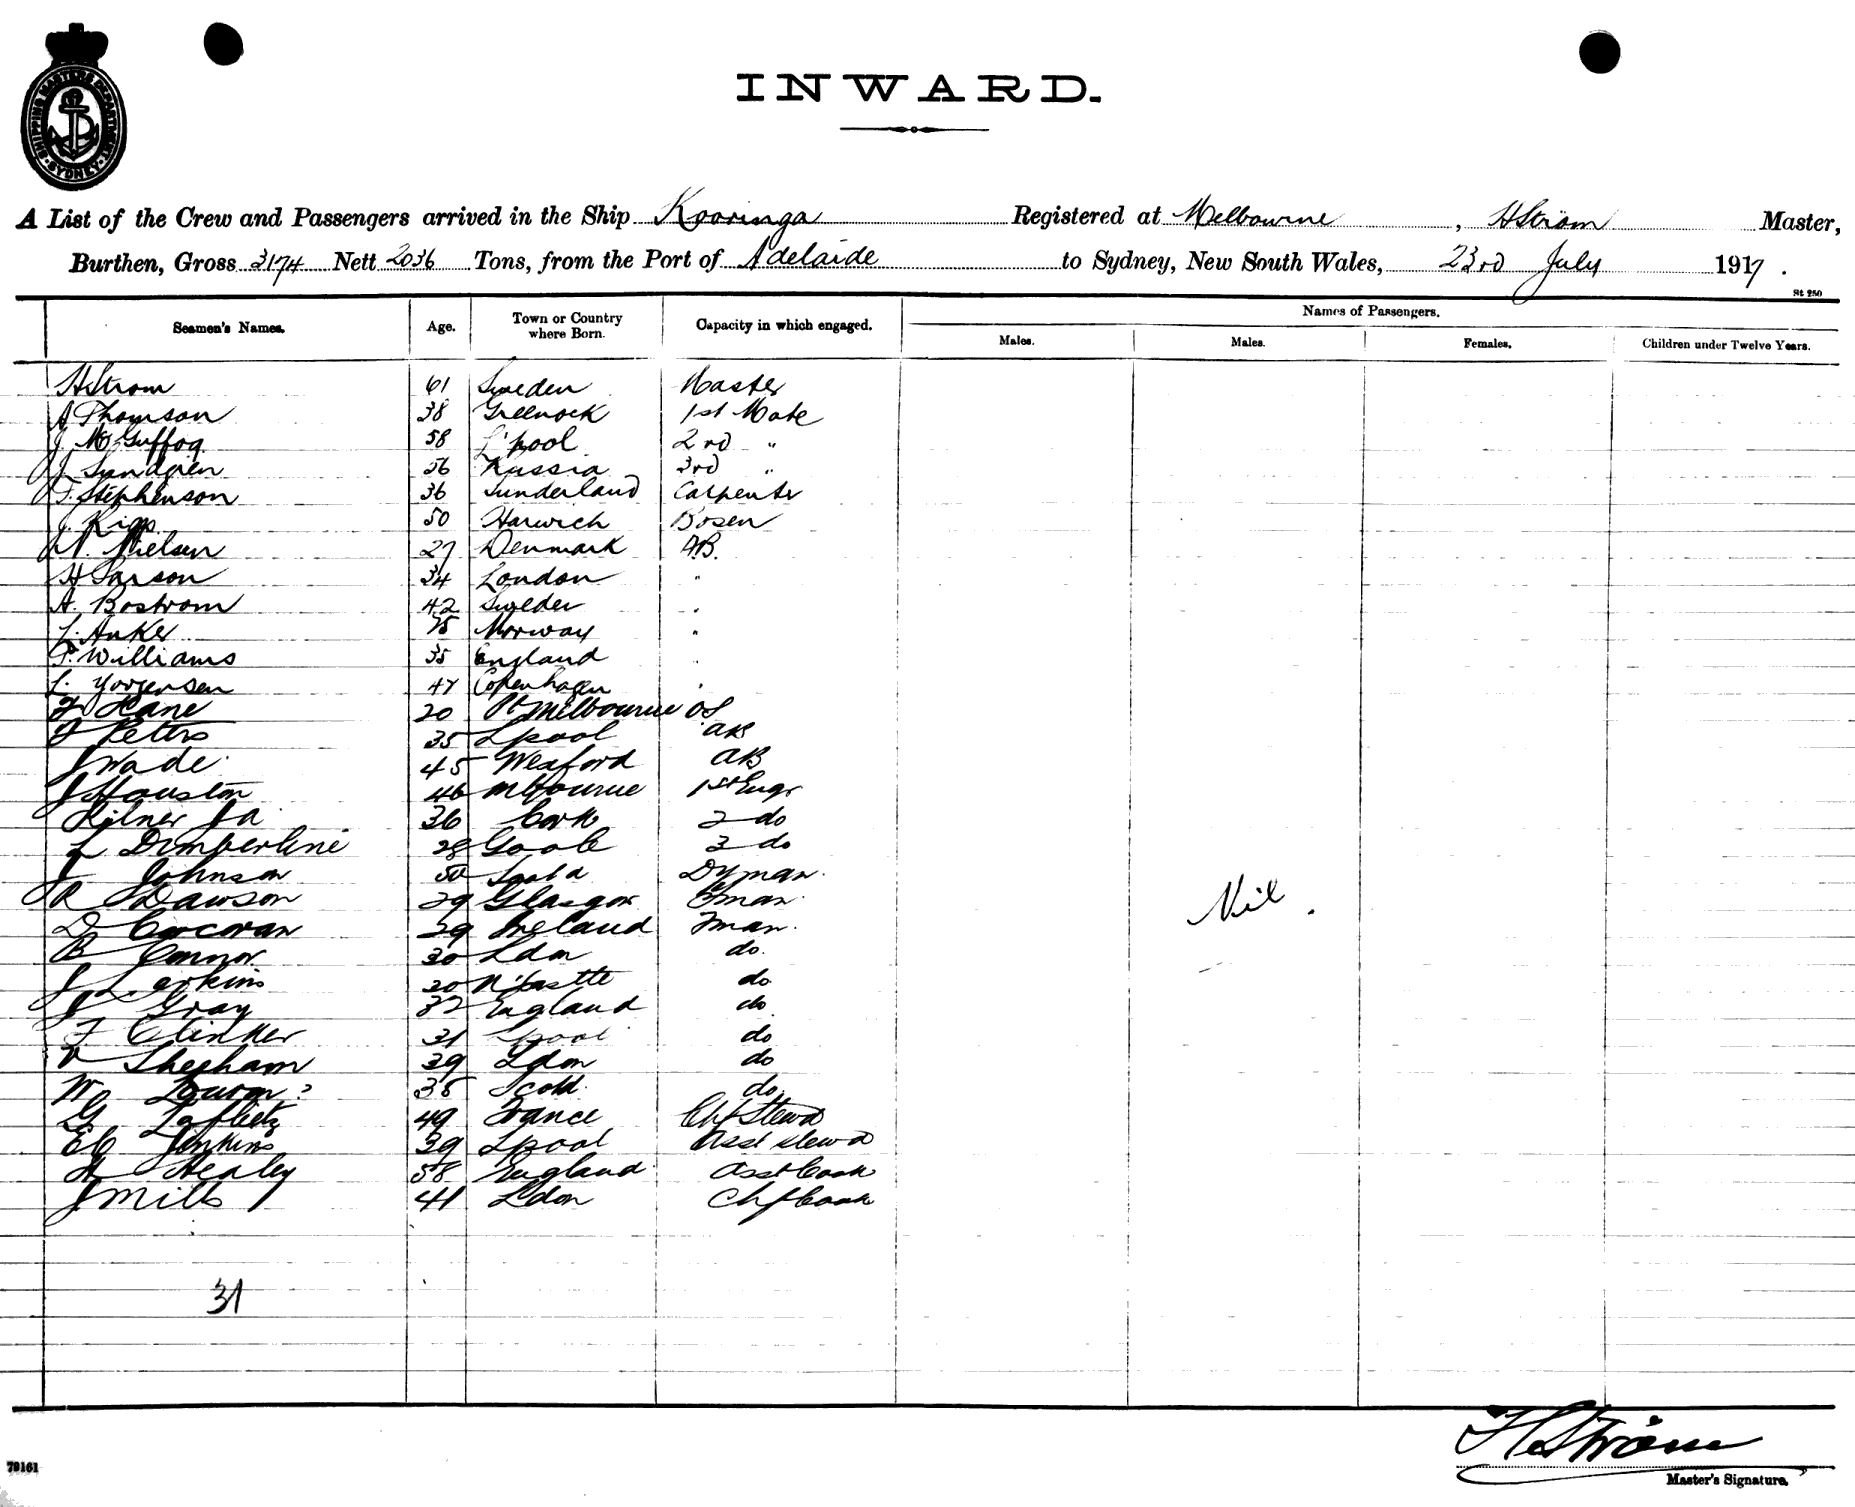 SHIPPING MASTERS DEPARTMENT. SYDNEY
INWARD.
A List of the Crew and Passengers arrived in the Ship Kooringa Registered at Melbourne, H Ström Master,
Burthen, Gross 3174 Nett 2036 Tons, from the Port of Adelaide to Sydney, New South Wales, 23rd July 1917.
St 250
Seamen's Names. Age. Town or Country where Born. Capacity in which engaged. Names of Passengers.
Males. Males. Females. Children under Twelve Years.
H Strom 61 Sweden Master
A Thomson 38 Greenock 1st Mate
J. McGuffog 58 L'pool 2nd "
J. Sundgren 56 Russia 3rd "
T. Stephenson 36 Sunderland Carpenter
J. 50 Harwich Bosen
N. Nielsen 27 Denmark AB.
H Larson 34 London "
A. Bostrom 42 Sweden "
L. Anker Norway "
P. Williams 35 England "
L. Yorgensen 47 Copenhagen "
Kane 20 Pt Melbourne OS
Peters 35 Lpool AB
J Wade 45 Wexford AB
J Houston 46 Mlbourne 1st Engr
Kilner Ja 36 Cork 2 do
L Dimberline 28 Goole 3 do
J Johnson 50 Dyman.
R Dawson 29 Glasgow
D Corcoran 29 Ireland Fman.
B Connor 30 Ldon do.
J Larkins 20 N'castle do
J Gray 32 England do
F Clinker 31 Lpool do
Shepham 39 Ldon do
Wm 35 Scotd. do
G 49 France Chf Stewd
EC Jenkins 39 Lpool Asst Stewd
H Healey 58 England Asst Cook
J Mills 41 Ldon Chf Cook
Nil.
31
H Ström
Master's Signature.
79161